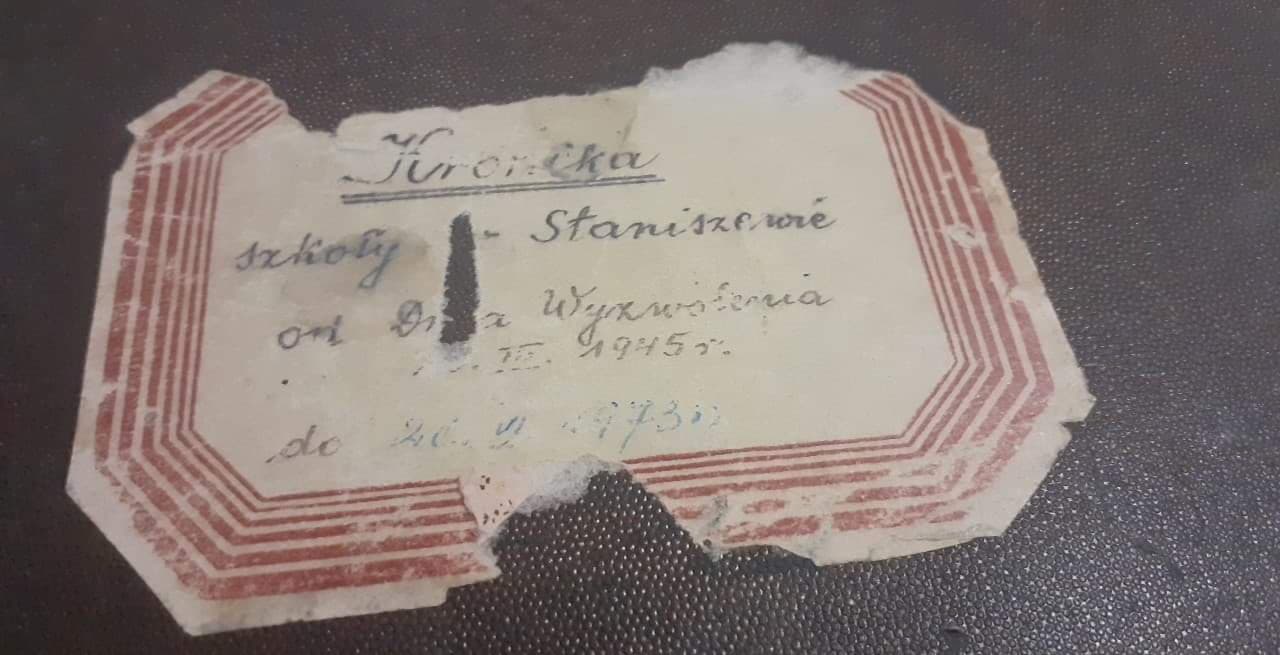 Kronika
szkoły - Staniszewie
od Dnia Wyzwolenia
III. 1945 r.
do 20. VI. 1973 r.